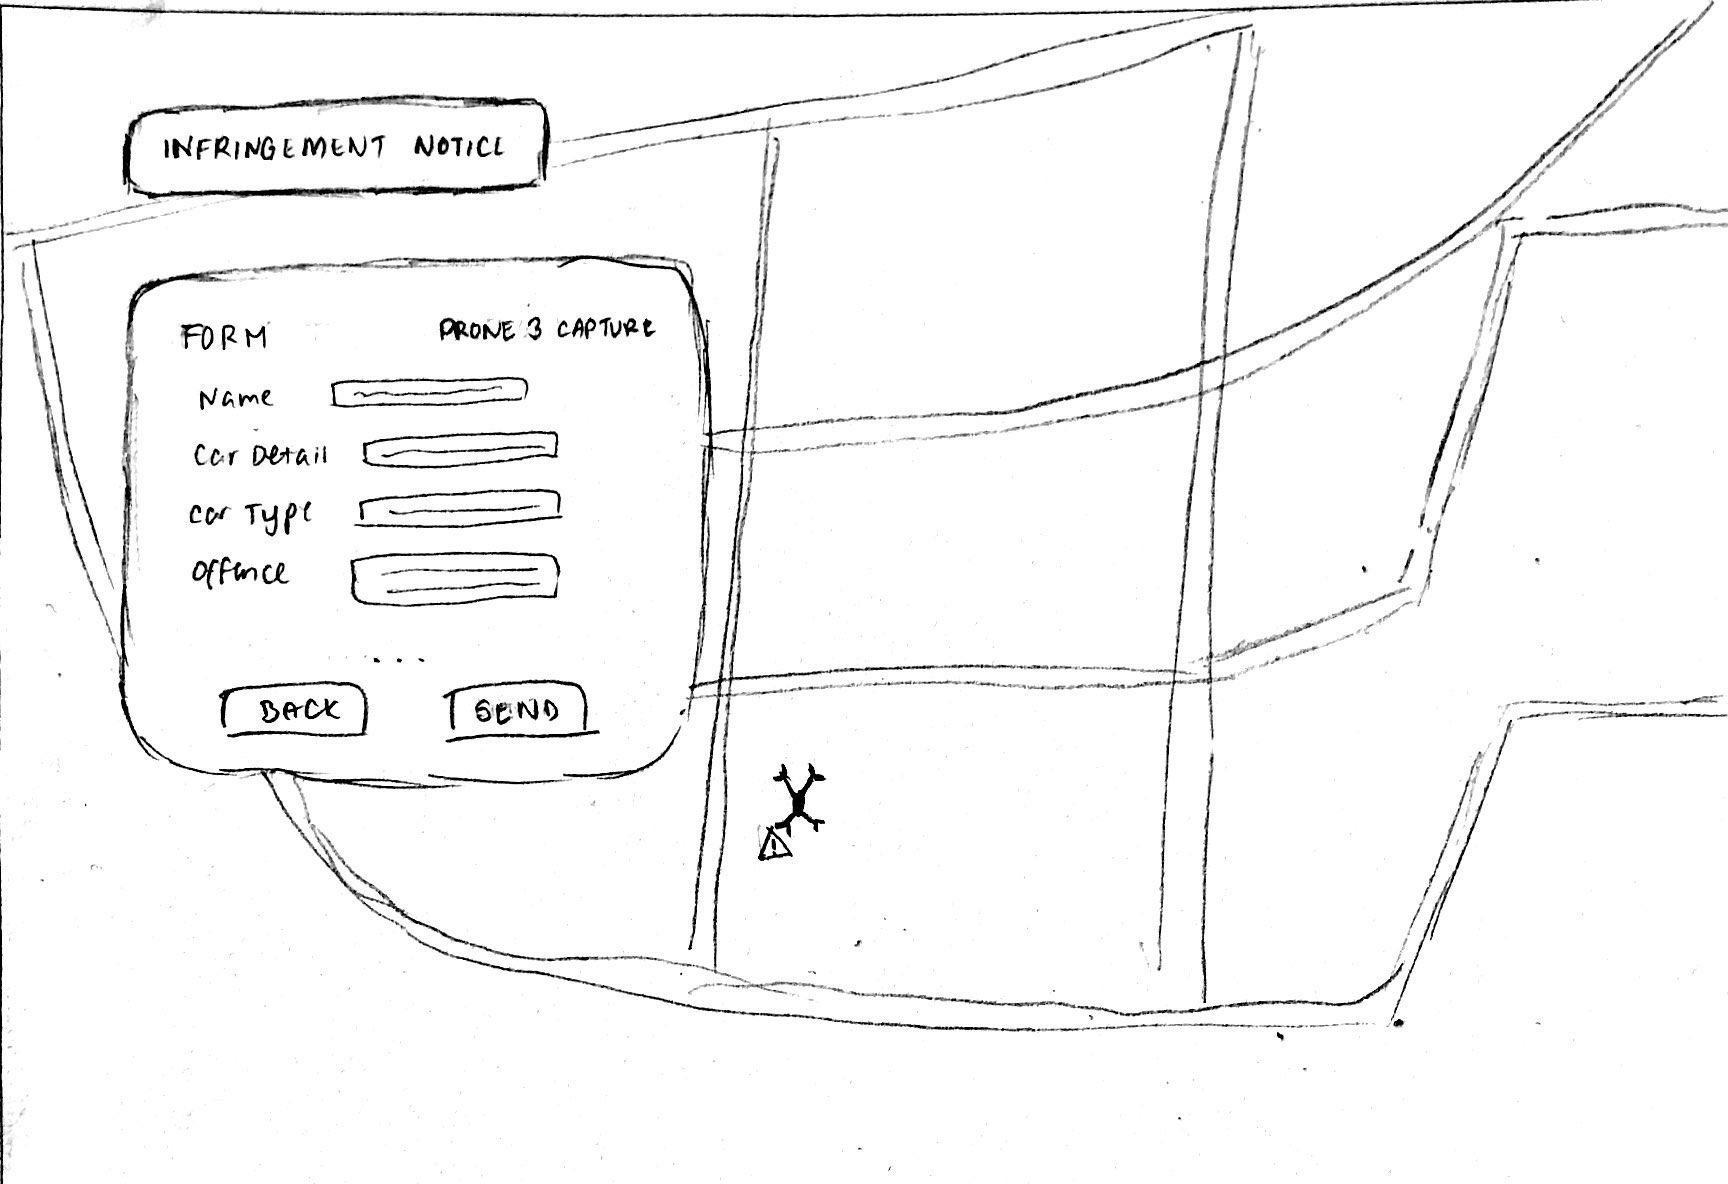 INFRINGEMENT NOTICE
FORM DRONE 3 CAPTURE
Name
Car Detail
Car Type
Offence
...
BACK SEND
!